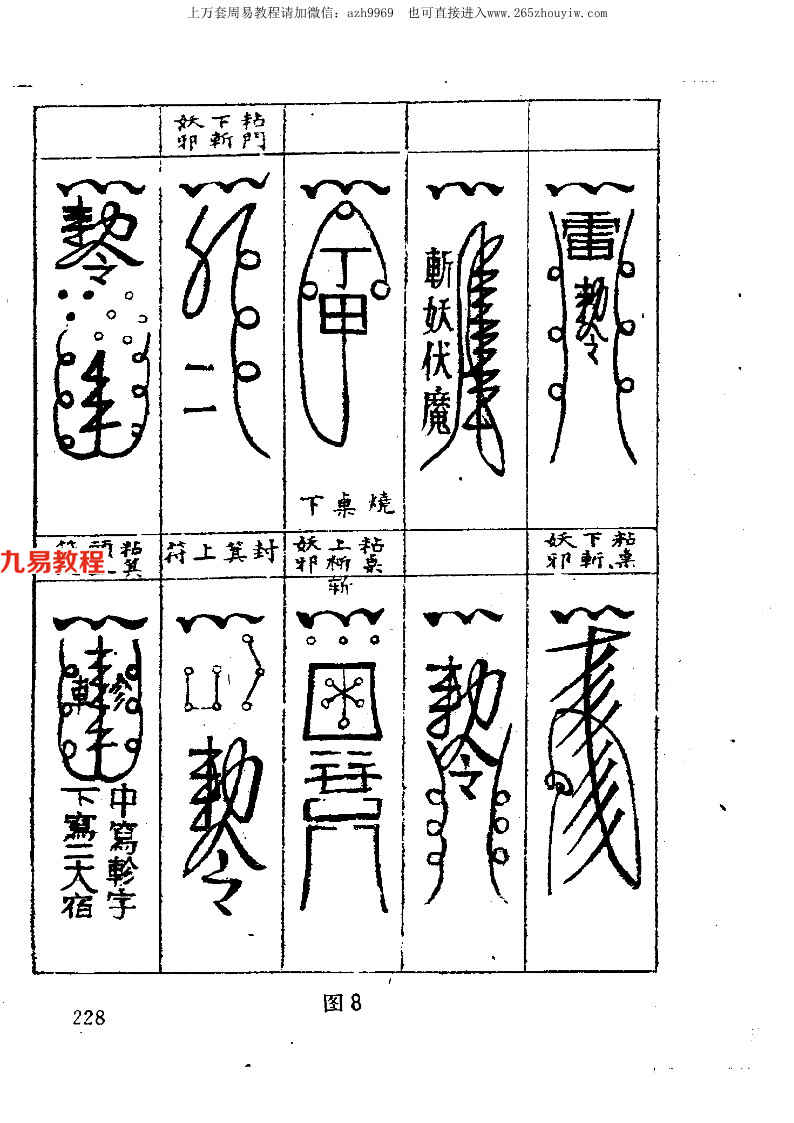 上万套周易教程请加微信：azh9969 也可直接进入www.265zhouyiw.com
粘門
下斬
妖邪
雷
勅令
斬妖伏魔
丁甲
燒桌下
二一
勅令
粘桌
下斬
妖邪
粘桌
上斬
妖邪
封箕上符
粘箕
九易教程
勅令
勅令
軫
中寫軫字
下寫二大宿
图8
228